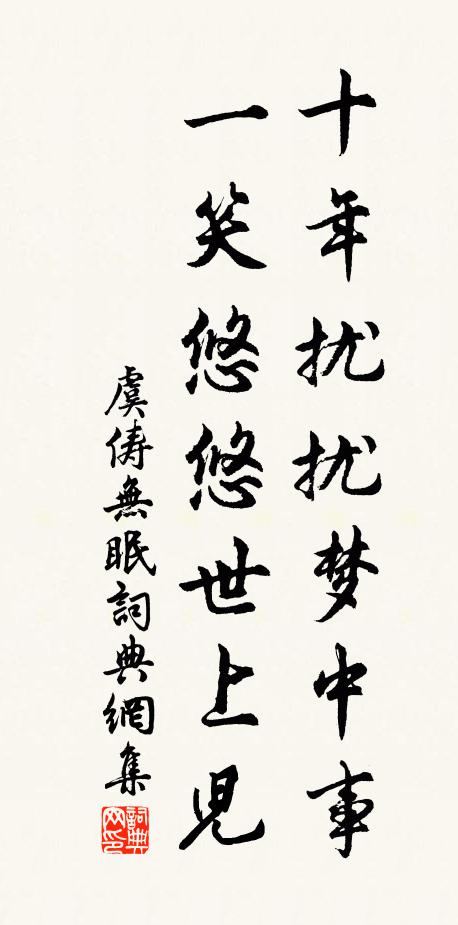 十年扰扰梦中事
一笑悠悠世上児
虞俦無眠詞典網集
詞典网印